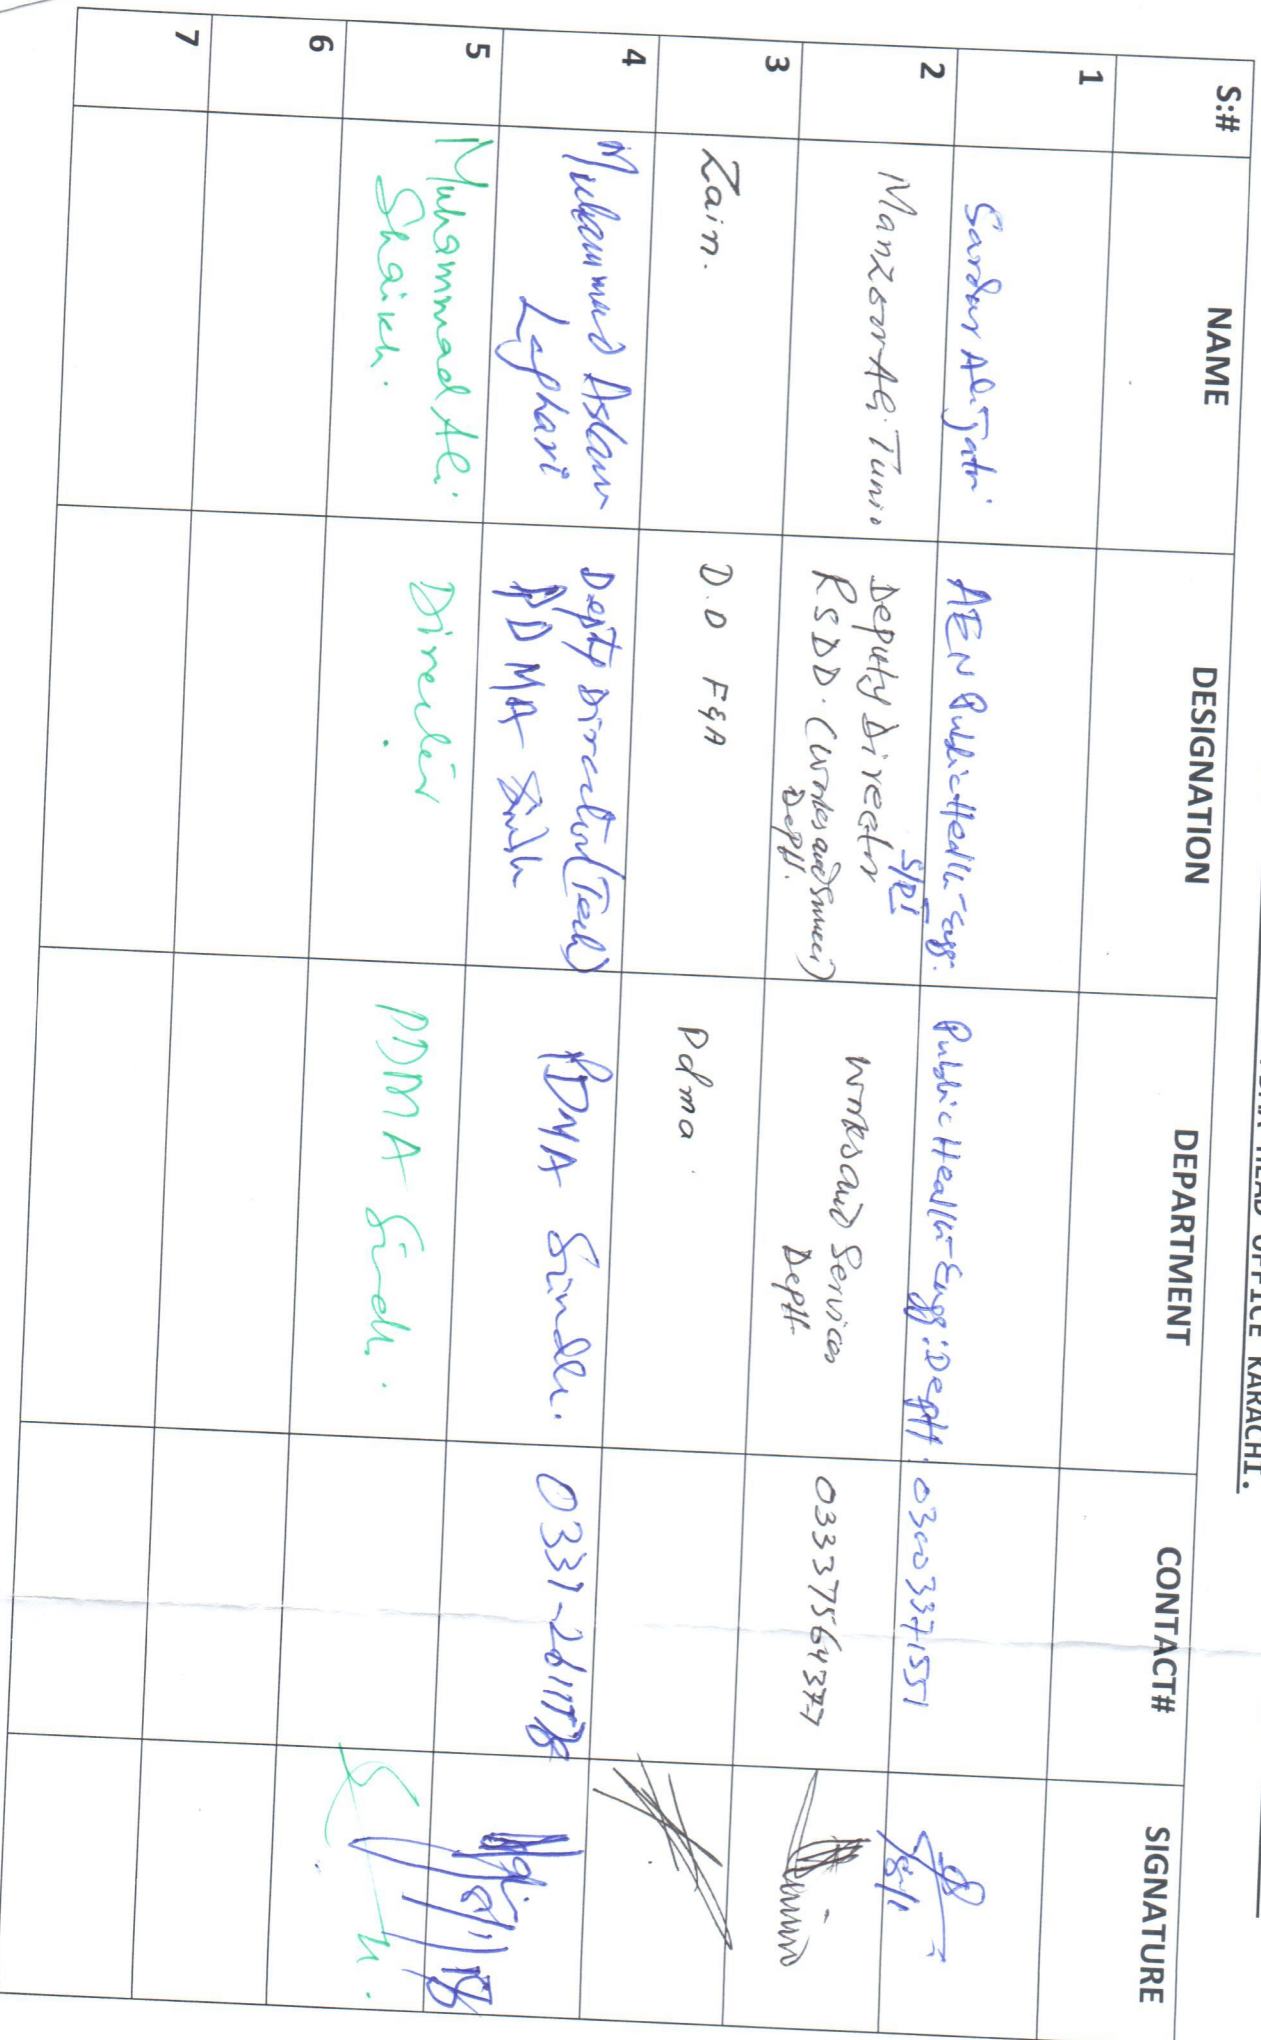 HEAD OFFICE KARACHI.
S:# NAME DESIGNATION DEPARTMENT CONTACT# SIGNATURE
1
Sardar Ali Jatoi AEN Public Health Engg. Public Health Engg: Deptt. 03003371551
2
Manzoor Ali Tunio Deputy Director
RSDD. (Works and Services)
Deptt.
Works and Services
Deptt
03337564377
3
Zain. D.O F&A Pdma
4
Muhammad Aslam
Laghari
Depty Director (Tech)
PDMA Sindh
PDMA Sindh.
5
Muhammad Ali
Shaikh.
Director
PDMA Sindh.
6
7